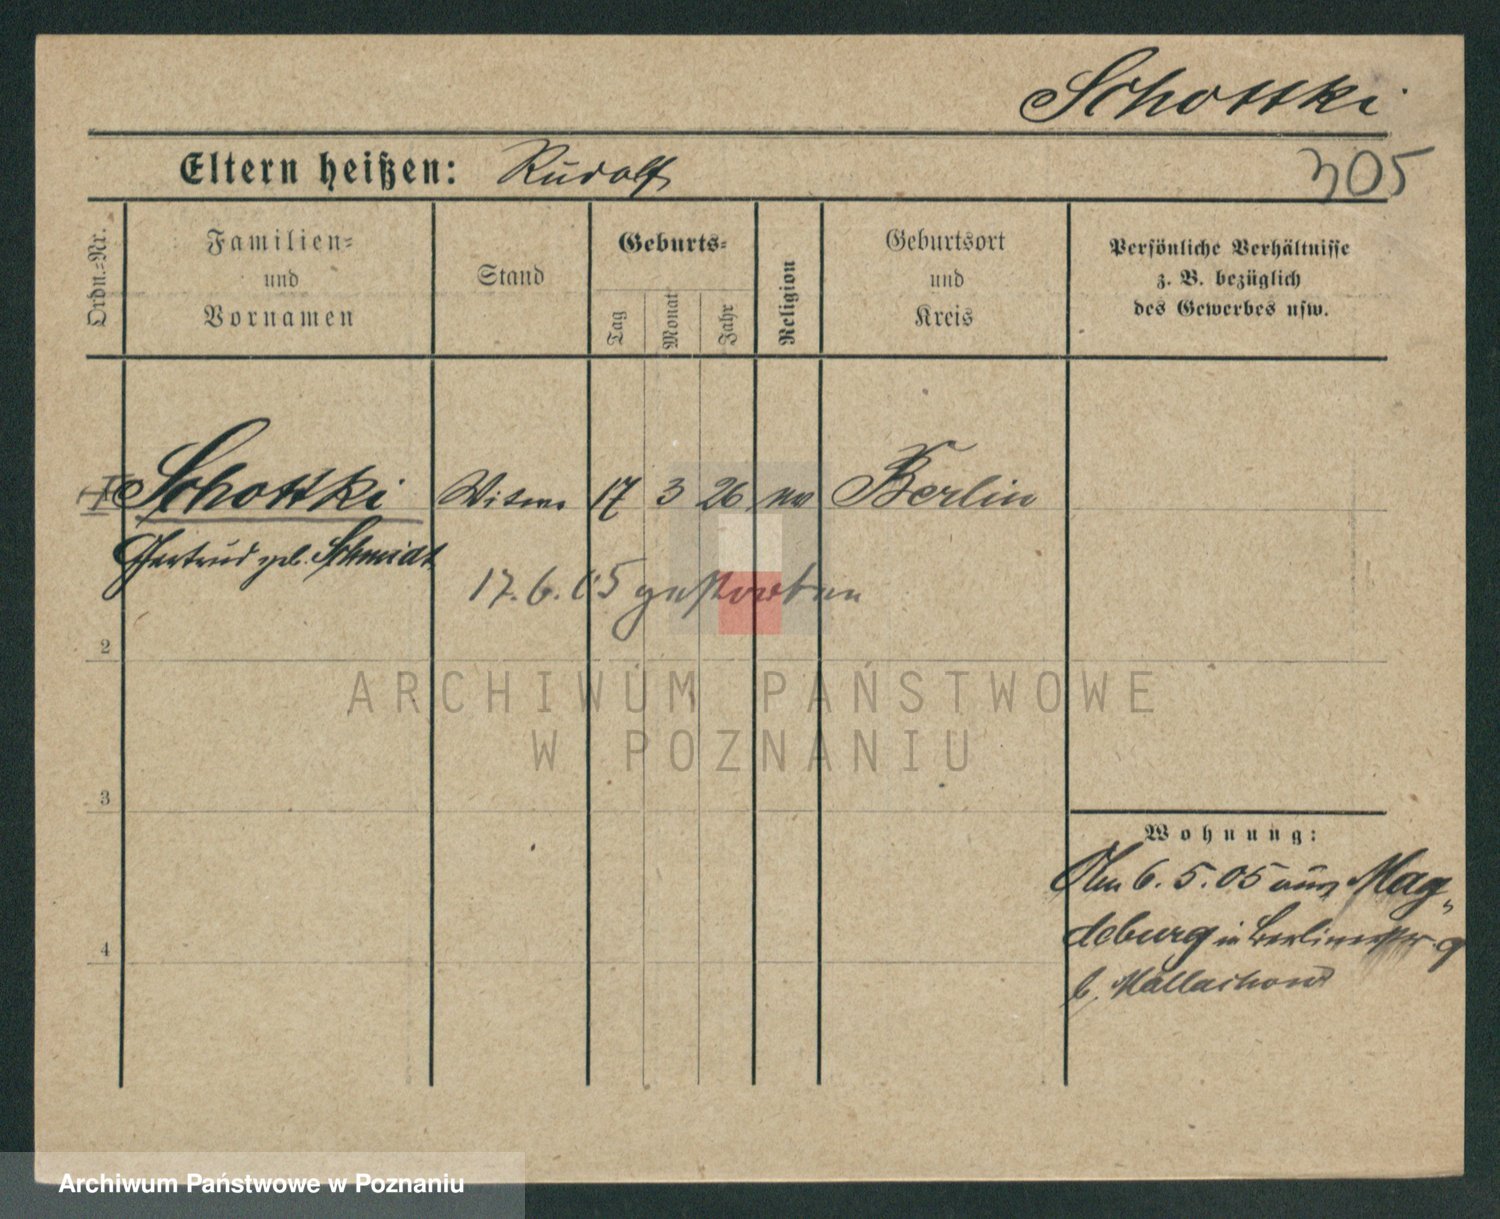 Schottki
Eltern heißen: Rudolf
305
Ordn.=Nr.
Familien=
und
Vornamen
Stand
Geburts=
Tag
Monat
Jahr
Religion
Geburtsort
und
Kreis
Persönliche Verhältnisse
z. B. bezüglich
des Gewerbes usw.
Schottki Witwe 17 3 26 ev Berlin
Gertrud geb. Schmidt
17.6.05 gestorben
2
ARCHIWUM PAŃSTWOWE
W POZNANIU
3
Wohnung:
Am 6.5.05 aus Mag-
deburg in Berlinerstr. 9
b.
4
Archiwum Państwowe w Poznaniu